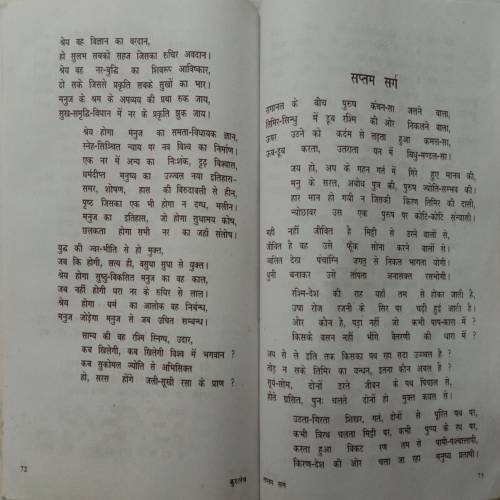 श्रेय वह विज्ञान का वरदान,
हो सुलभ सबको सहज जिसका रुचिर अवदान।
श्रेय वह नर-बुद्धि का शिवरूप आविष्कार,
ढो सके जिससे प्रकृति सबके सुखों का भार।
मनुज के श्रम के अपव्यय की प्रथा रुक जाय,
सुख-समृद्धि-विधान में नर के प्रकृति झुक जाय।
श्रेय होगा मनुज का समता-विधायक ज्ञान,
स्नेह-सिञ्चित न्याय पर नव विश्व का निर्माण।
एक नर में अन्य का निःशंक, दृढ़ विश्वास,
धर्मदीप्त मनुष्य का उज्ज्वल नया इतिहास–
समर, शोषण, ह्रास की विरुदावली से हीन,
पृष्ठ जिसका एक भी होगा न दग्ध, मलीन।
मनुज का इतिहास, जो होगा सुधामय कोष,
छलकता होगा सभी नर का जहाँ संतोष।
युद्ध की ज्वर-भीति से हो मुक्त,
जब कि होगी, सत्य ही, वसुधा सुधा से युक्त।
श्रेय होगा सुष्ठु-विकसित मनुज का वह काल,
जब नहीं होगी धरा नर के रुधिर से लाल।
श्रेय होगा धर्म का आलोक वह निर्बन्ध,
मनुज जोड़ेगा मनुज से जब उचित सम्बन्ध।
साम्य की वह रश्मि स्निग्ध, उदार,
कब खिलेगी, कब खिलेगी विश्व में भगवान ?
कब सुकोमल ज्योति से अभिसिक्त
हो, सरस होंगे जली-सूखी रसा के प्राण ?
72
कुरुक्षेत्र
सप्तम सर्ग
रागानल के बीच पुरुष कंचन-सा जलने वाला,
तिमिर-सिन्धु में डूब रश्मि की ओर निकलने वाला,
ऊपर उठने को कर्दम से लड़ता हुआ कमल-सा,
ऊब-डूब करता, उतराता घन में विधु-मण्डल-सा।
जय हो, अघ के गहन गर्त में गिरे हुए मानव की,
मनु के सरल, अबोध पुत्र की, पुरुष ज्योति-सम्भव की।
हार मान हो गयी न जिसकी किरण तिमिर की दासी,
न्योछावर उस एक पुरुष पर कोटि-कोटि संन्यासी।
मही नहीं जीवित है मिट्टी से डरने वालों से,
जीवित है वह उसे फूँक सोना करने वालों से।
ज्वलित देख पंचाग्नि जगत् से निकल भागता योगी।
धुनी बनाकर उसे तापता अनासक्त रसभोगी।
रश्मि-देश की राह यहाँ तम से होकर जाती है,
उषा रोज रजनी के सिर पर चढ़ी हुई आती है।
और कौन है, पड़ा नहीं जो कभी पाप-कारा में ?
किसके वसन नहीं भींगे वैतरणी की धारा में ?
अथ से ले इति तक किसका पथ रहा सदा उज्ज्वल है ?
तोड़ न सके तिमिर का बन्धन, इतना कौन अबल है ?
सूर्य-सोम, दोनों डरते जीवन के पथ पिच्छल से,
होते ग्रसित, पुनः चलते दोनों हो मुक्त कवल से।
उठता-गिरता शिखर, गर्त, दोनों से पूरित पथ पर,
कभी विरथ चलता मिट्टी पर, कभी पुण्य के रथ पर,
करता हुआ विकट रण तम से पापी-पश्चात्तापी,
किरण-देश की ओर चला जा रहा मनुष्य प्रतापी।
सप्तम सर्ग
73